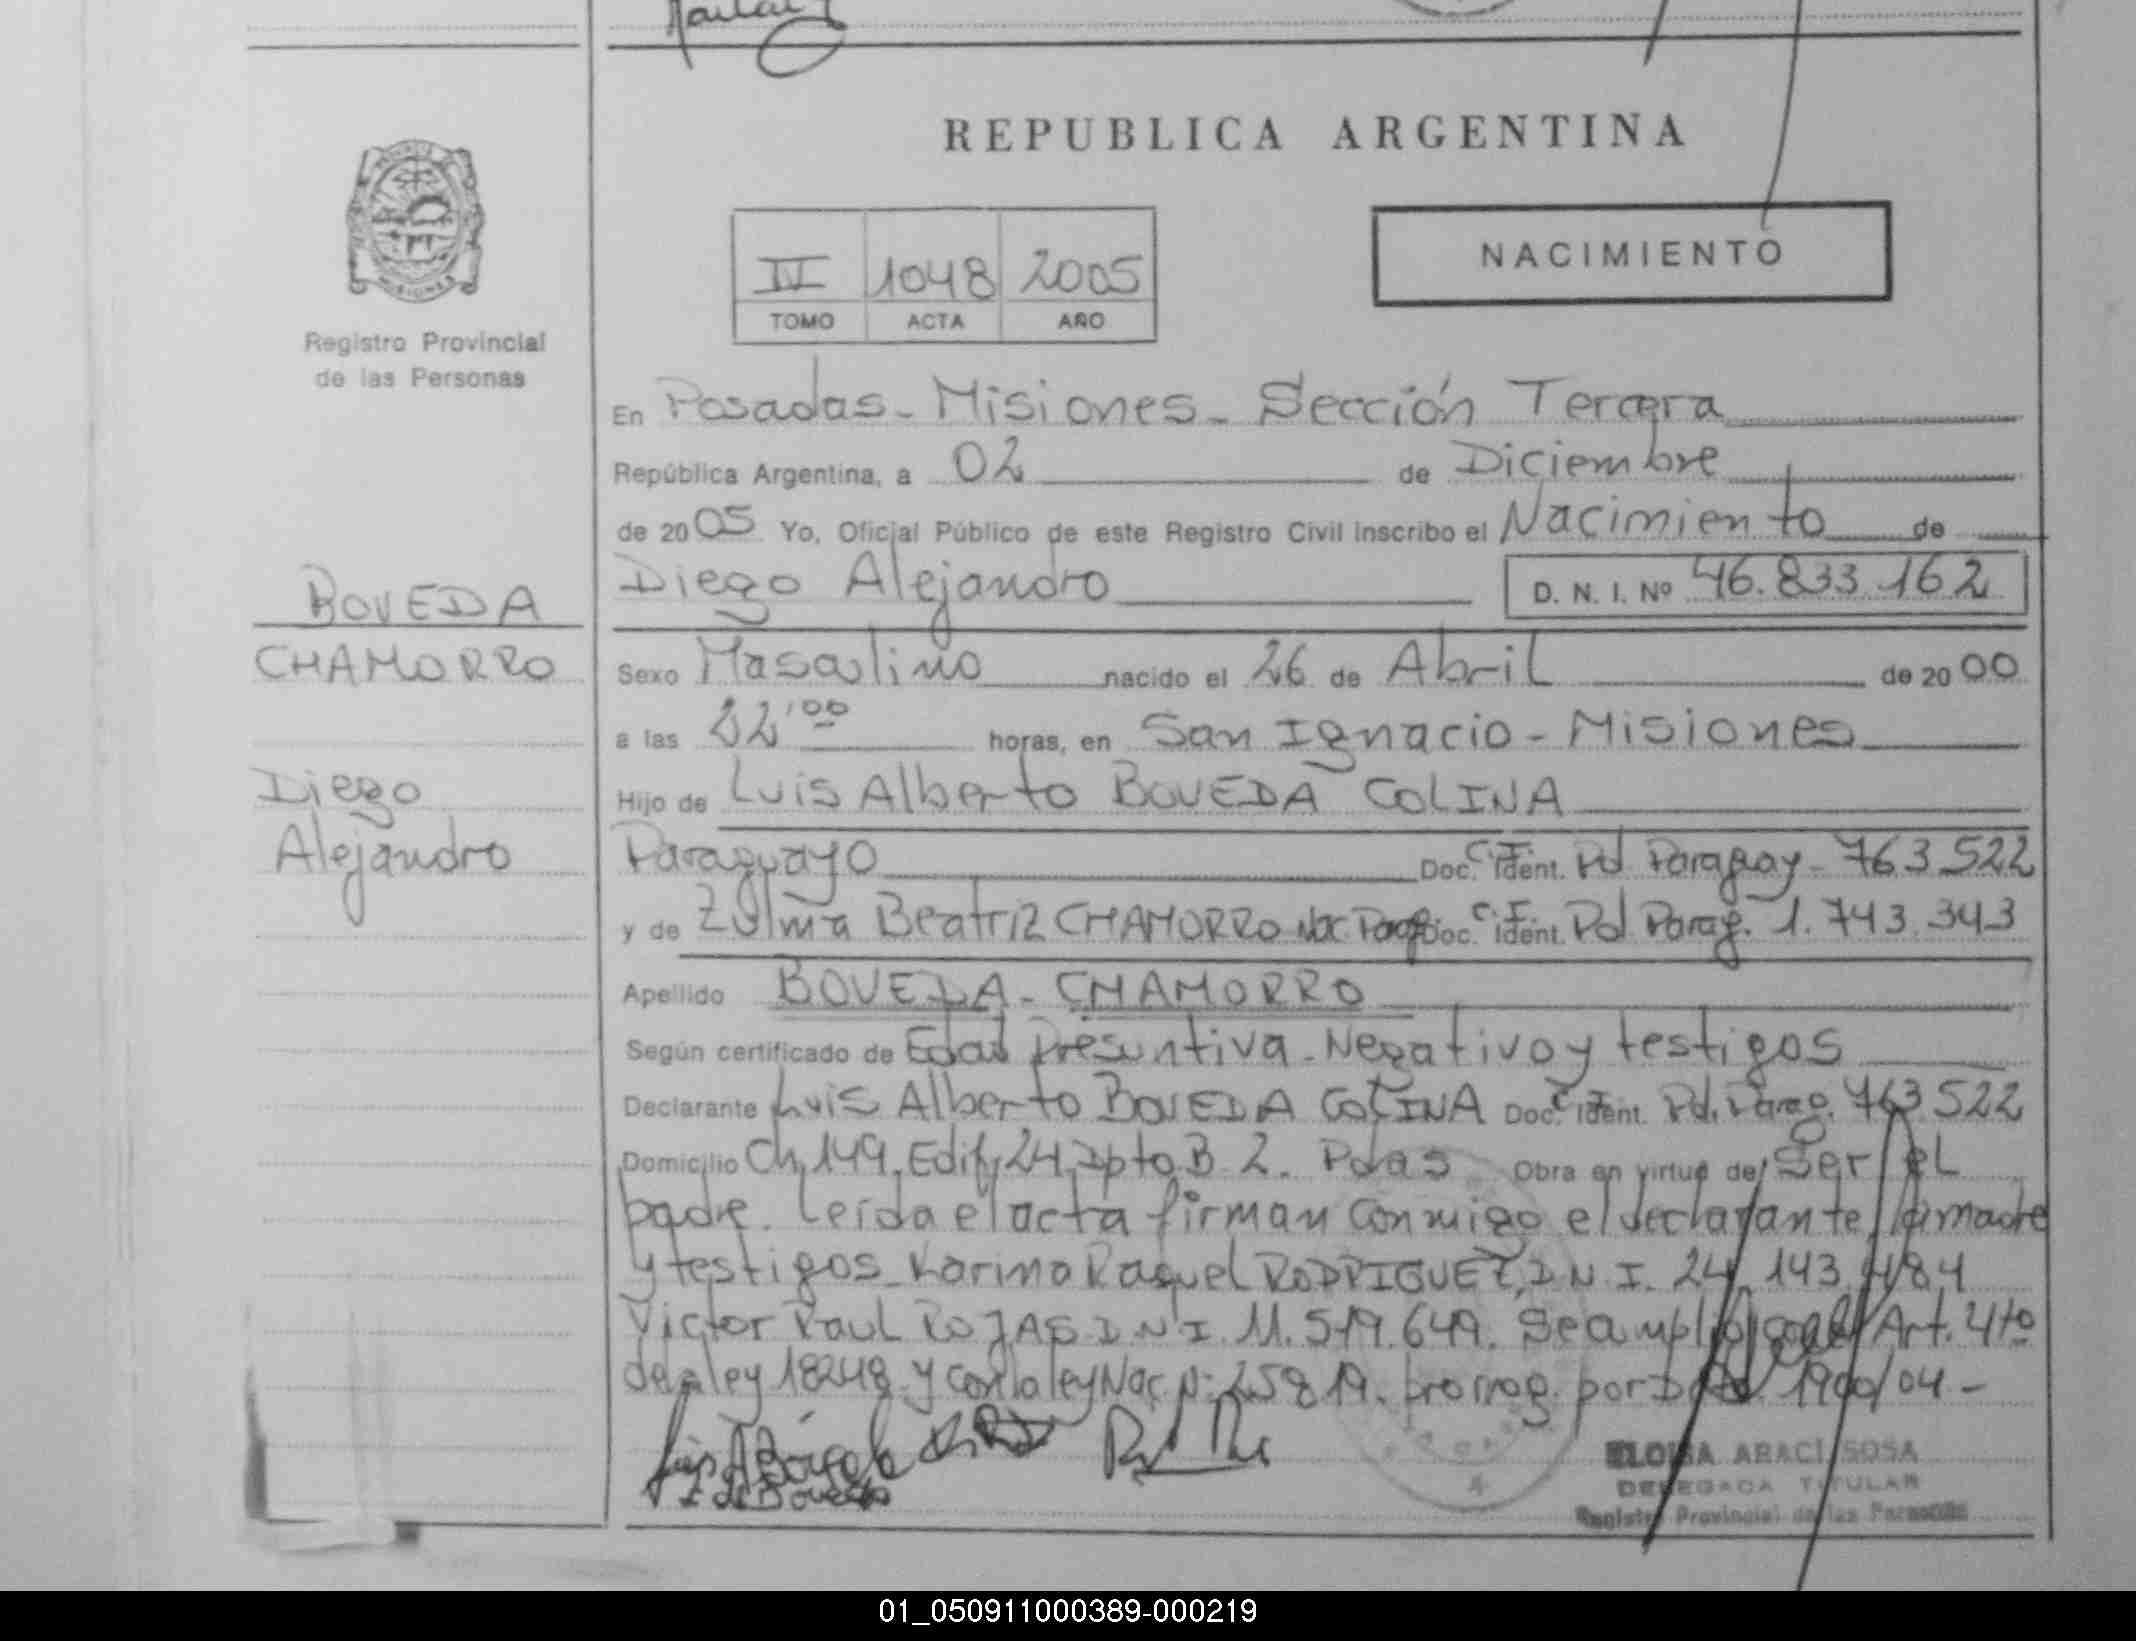 REPUBLICA ARGENTINA
NACIMIENTO
IV 1048 2005
TOMO ACTA AÑO
Registro Provincial
de las Personas
BOVEDA
CHAMORRO
Diego
Alejandro
En Posadas - Misiones - Sección Tercera
República Argentina, a 02 de Diciembre
de 2005 Yo, Oficial Público de este Registro Civil inscribo el Nacimiento de
Diego Alejandro D. N. I. Nº 46.833.162
Sexo Masculino nacido el 26 de Abril de 2000
a las 22'00 horas, en San Ignacio - Misiones
Hijo de Luis Alberto BOVEDA COLINA
Paraguayo Doc. C.I. Ident. Pol Paraguay - 763.522
y de Zulma Beatriz CHAMORRO Nac. Parag. Doc. C.I. Ident. Pol Parag. 1.743.343
Apellido BOVEDA - CHAMORRO
Según certificado de Edad Presuntiva - Negativo y testigos
Declarante Luis Alberto BOVEDA COLINA Doc. C.I. Ident. Pol. Parag. 763.522
Domicilio Ch. 149, Edif. 24 Dpto B 2. Pdas Obra en virtud de Ser el
padre. Leída el acta firman conmigo el declarante, la madre
y testigos Karina Raquel RODRIGUEZ, D.N.I. 24.143.484
Victor Raul ROJAS D.N.I. 11.519.649. Art. 4to
de la ley 18248 y con la ley Nac. Nº 25819. prorrog. por 1900/04 -
ELOISA ARACI SOSA
DELEGADA TITULAR
Registro Provincial de las Personas
01_050911000389-000219